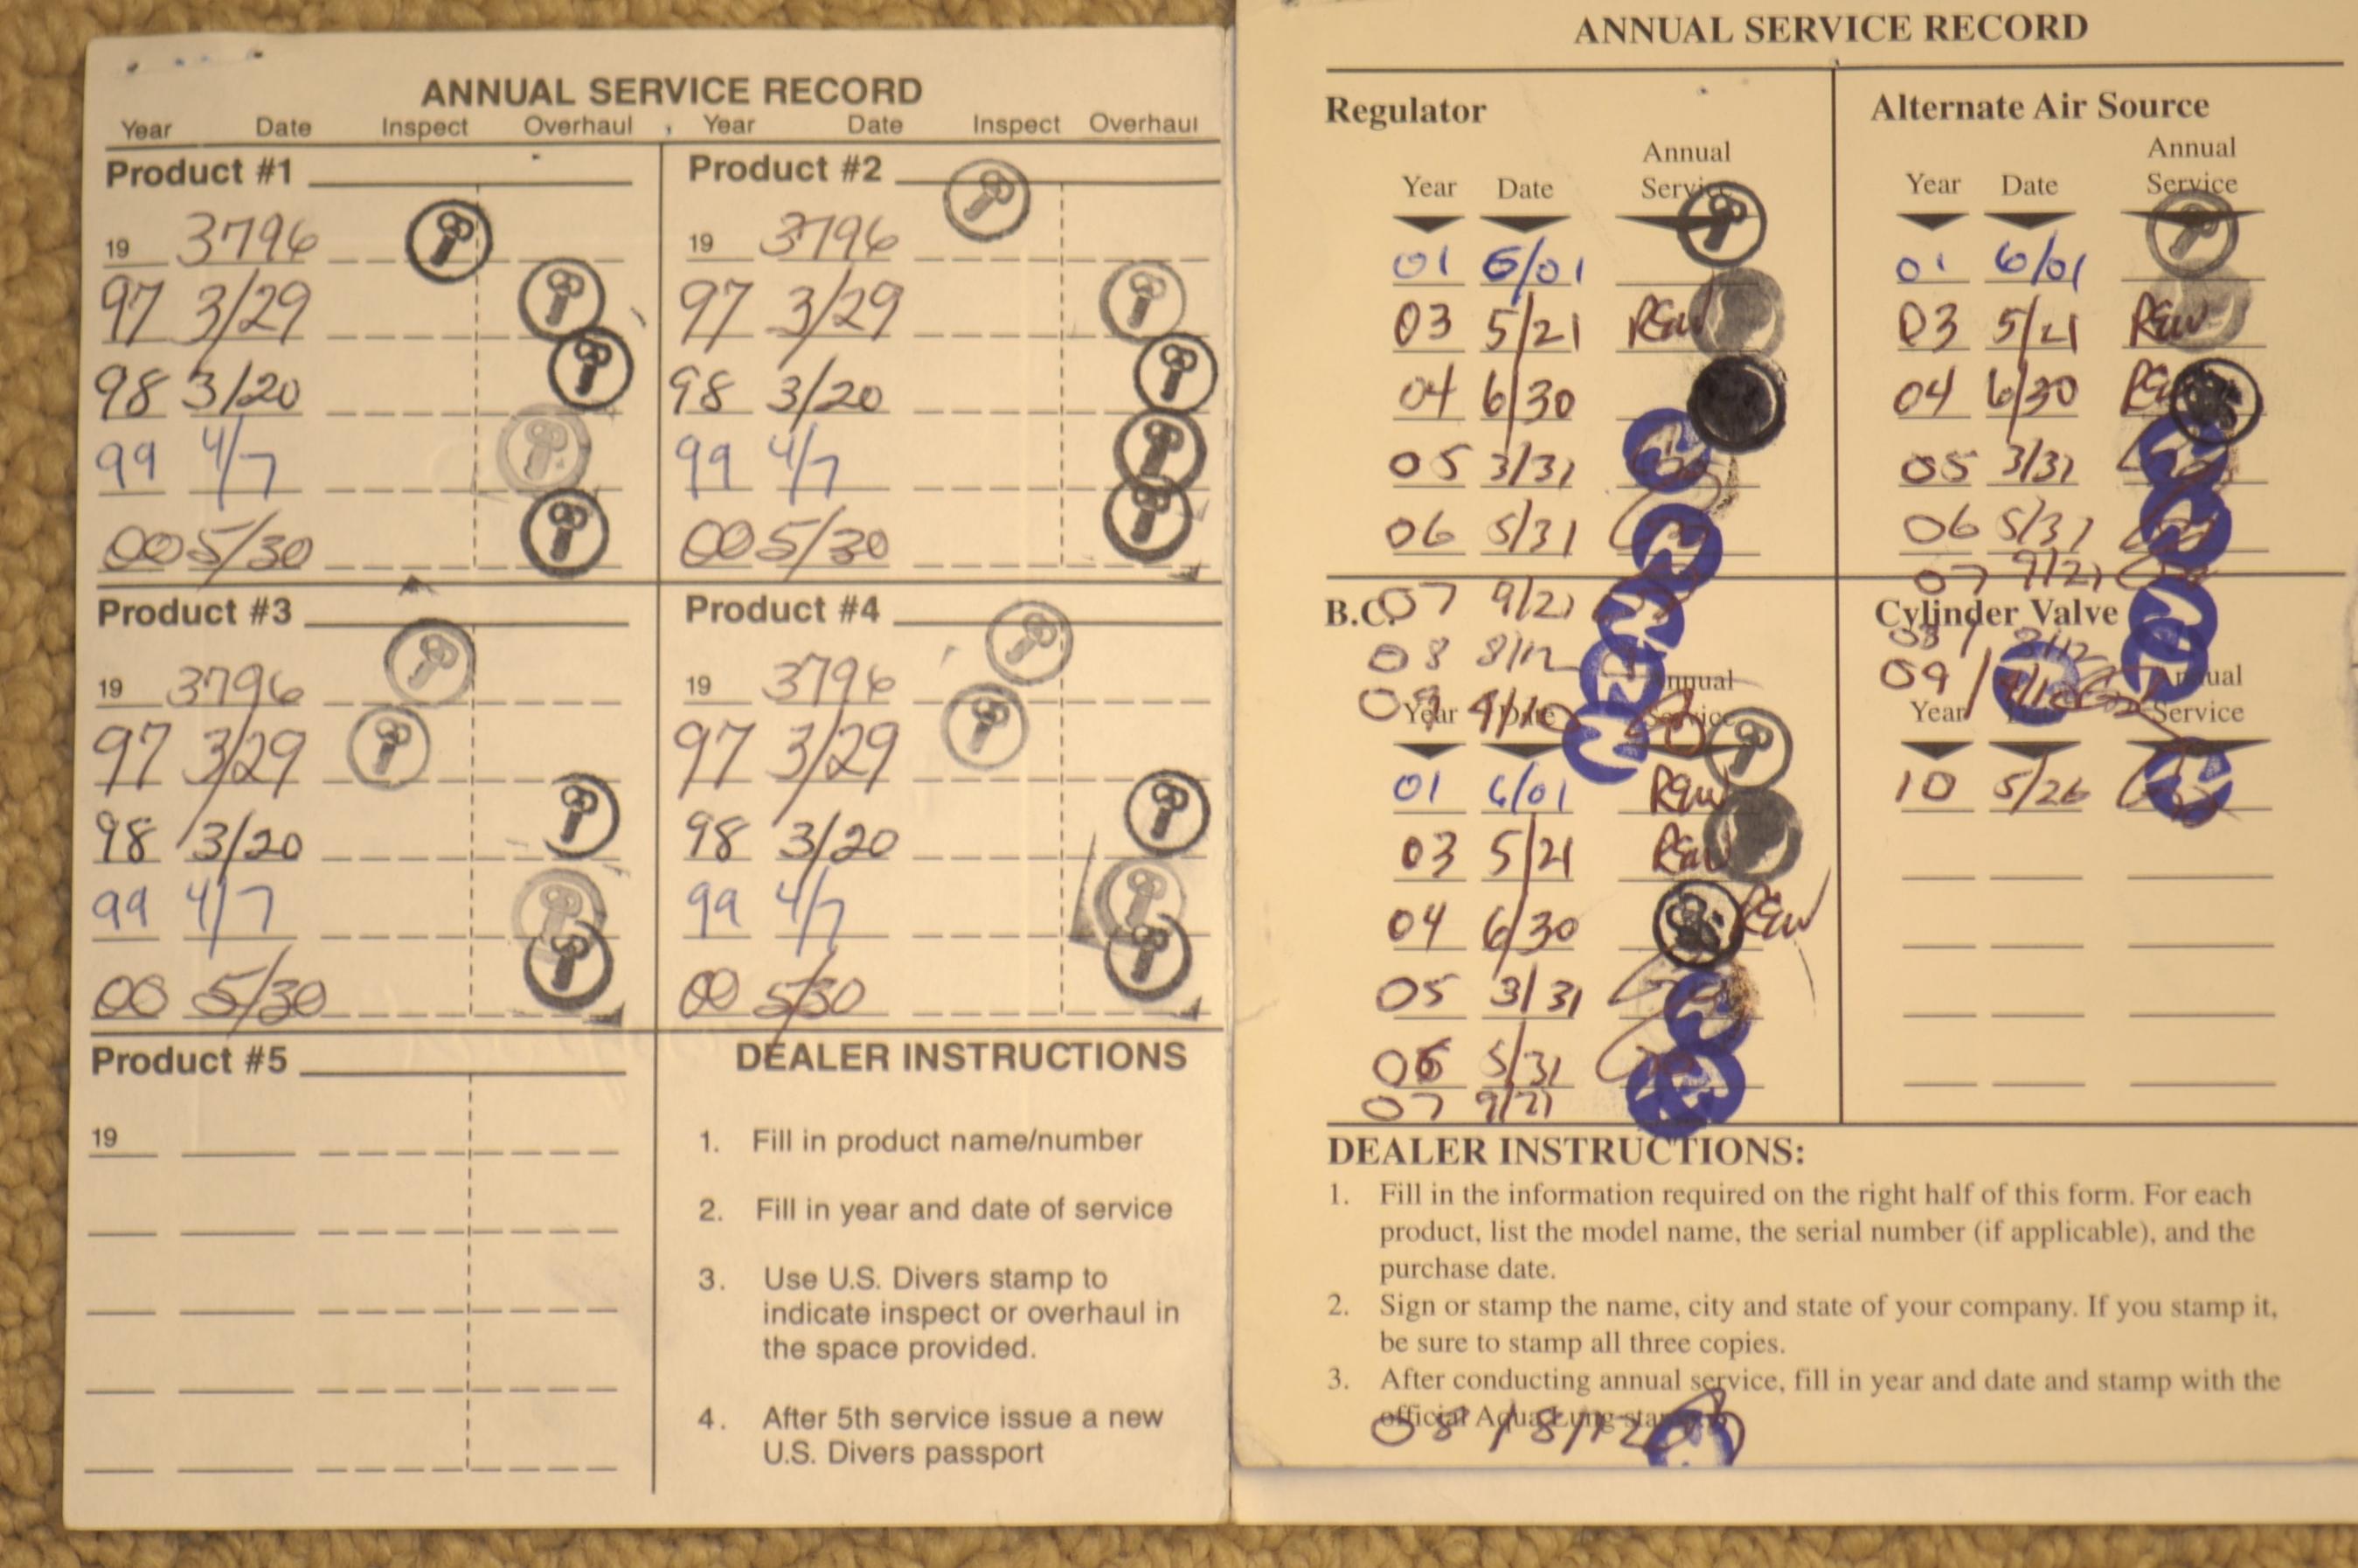 ANNUAL SERVICE RECORD
Year Date Inspect Overhaul Year Date Inspect Overhaul
Product #1
19 3796
97 3/29
98 3/20
99 4/7
00 5/30
Product #2
19 3796
97 3/29
98 3/20
99 4/7
00 5/30
Product #3
19 3796
97 3/29
98 3/20
99 4/7
00 5/30
Product #4
19 3796
97 3/29
98 3/20
99 4/7
00 5/30
Product #5
19
DEALER INSTRUCTIONS
1. Fill in product name/number
2. Fill in year and date of service
3. Use U.S. Divers stamp to
indicate inspect or overhaul in
the space provided.
4. After 5th service issue a new
U.S. Divers passport
ANNUAL SERVICE RECORD
Regulator
Annual
Year Date Service
01 6/01
03 5/21 REW
04 6/30
05 3/31
06 5/31
07 9/21
08 8/12
09
Alternate Air Source
Annual
Year Date Service
01 6/01
03 5/21 REW
04 6/30
05 3/31
06 5/31
07 9/21
08 / 8/12
09 /
B.C.
Annual
Year Date Service
01 6/01 REW
03 5/21 REW
04 6/30 REW
05 3/31
06 5/31
07 9/21
Cylinder Valve
Annual
Year Service
10 5/26
DEALER INSTRUCTIONS:
1. Fill in the information required on the right half of this form. For each
product, list the model name, the serial number (if applicable), and the
purchase date.
2. Sign or stamp the name, city and state of your company. If you stamp it,
be sure to stamp all three copies.
3. After conducting annual service, fill in year and date and stamp with the
official Aqua Lung stamp.
08 / 8/12